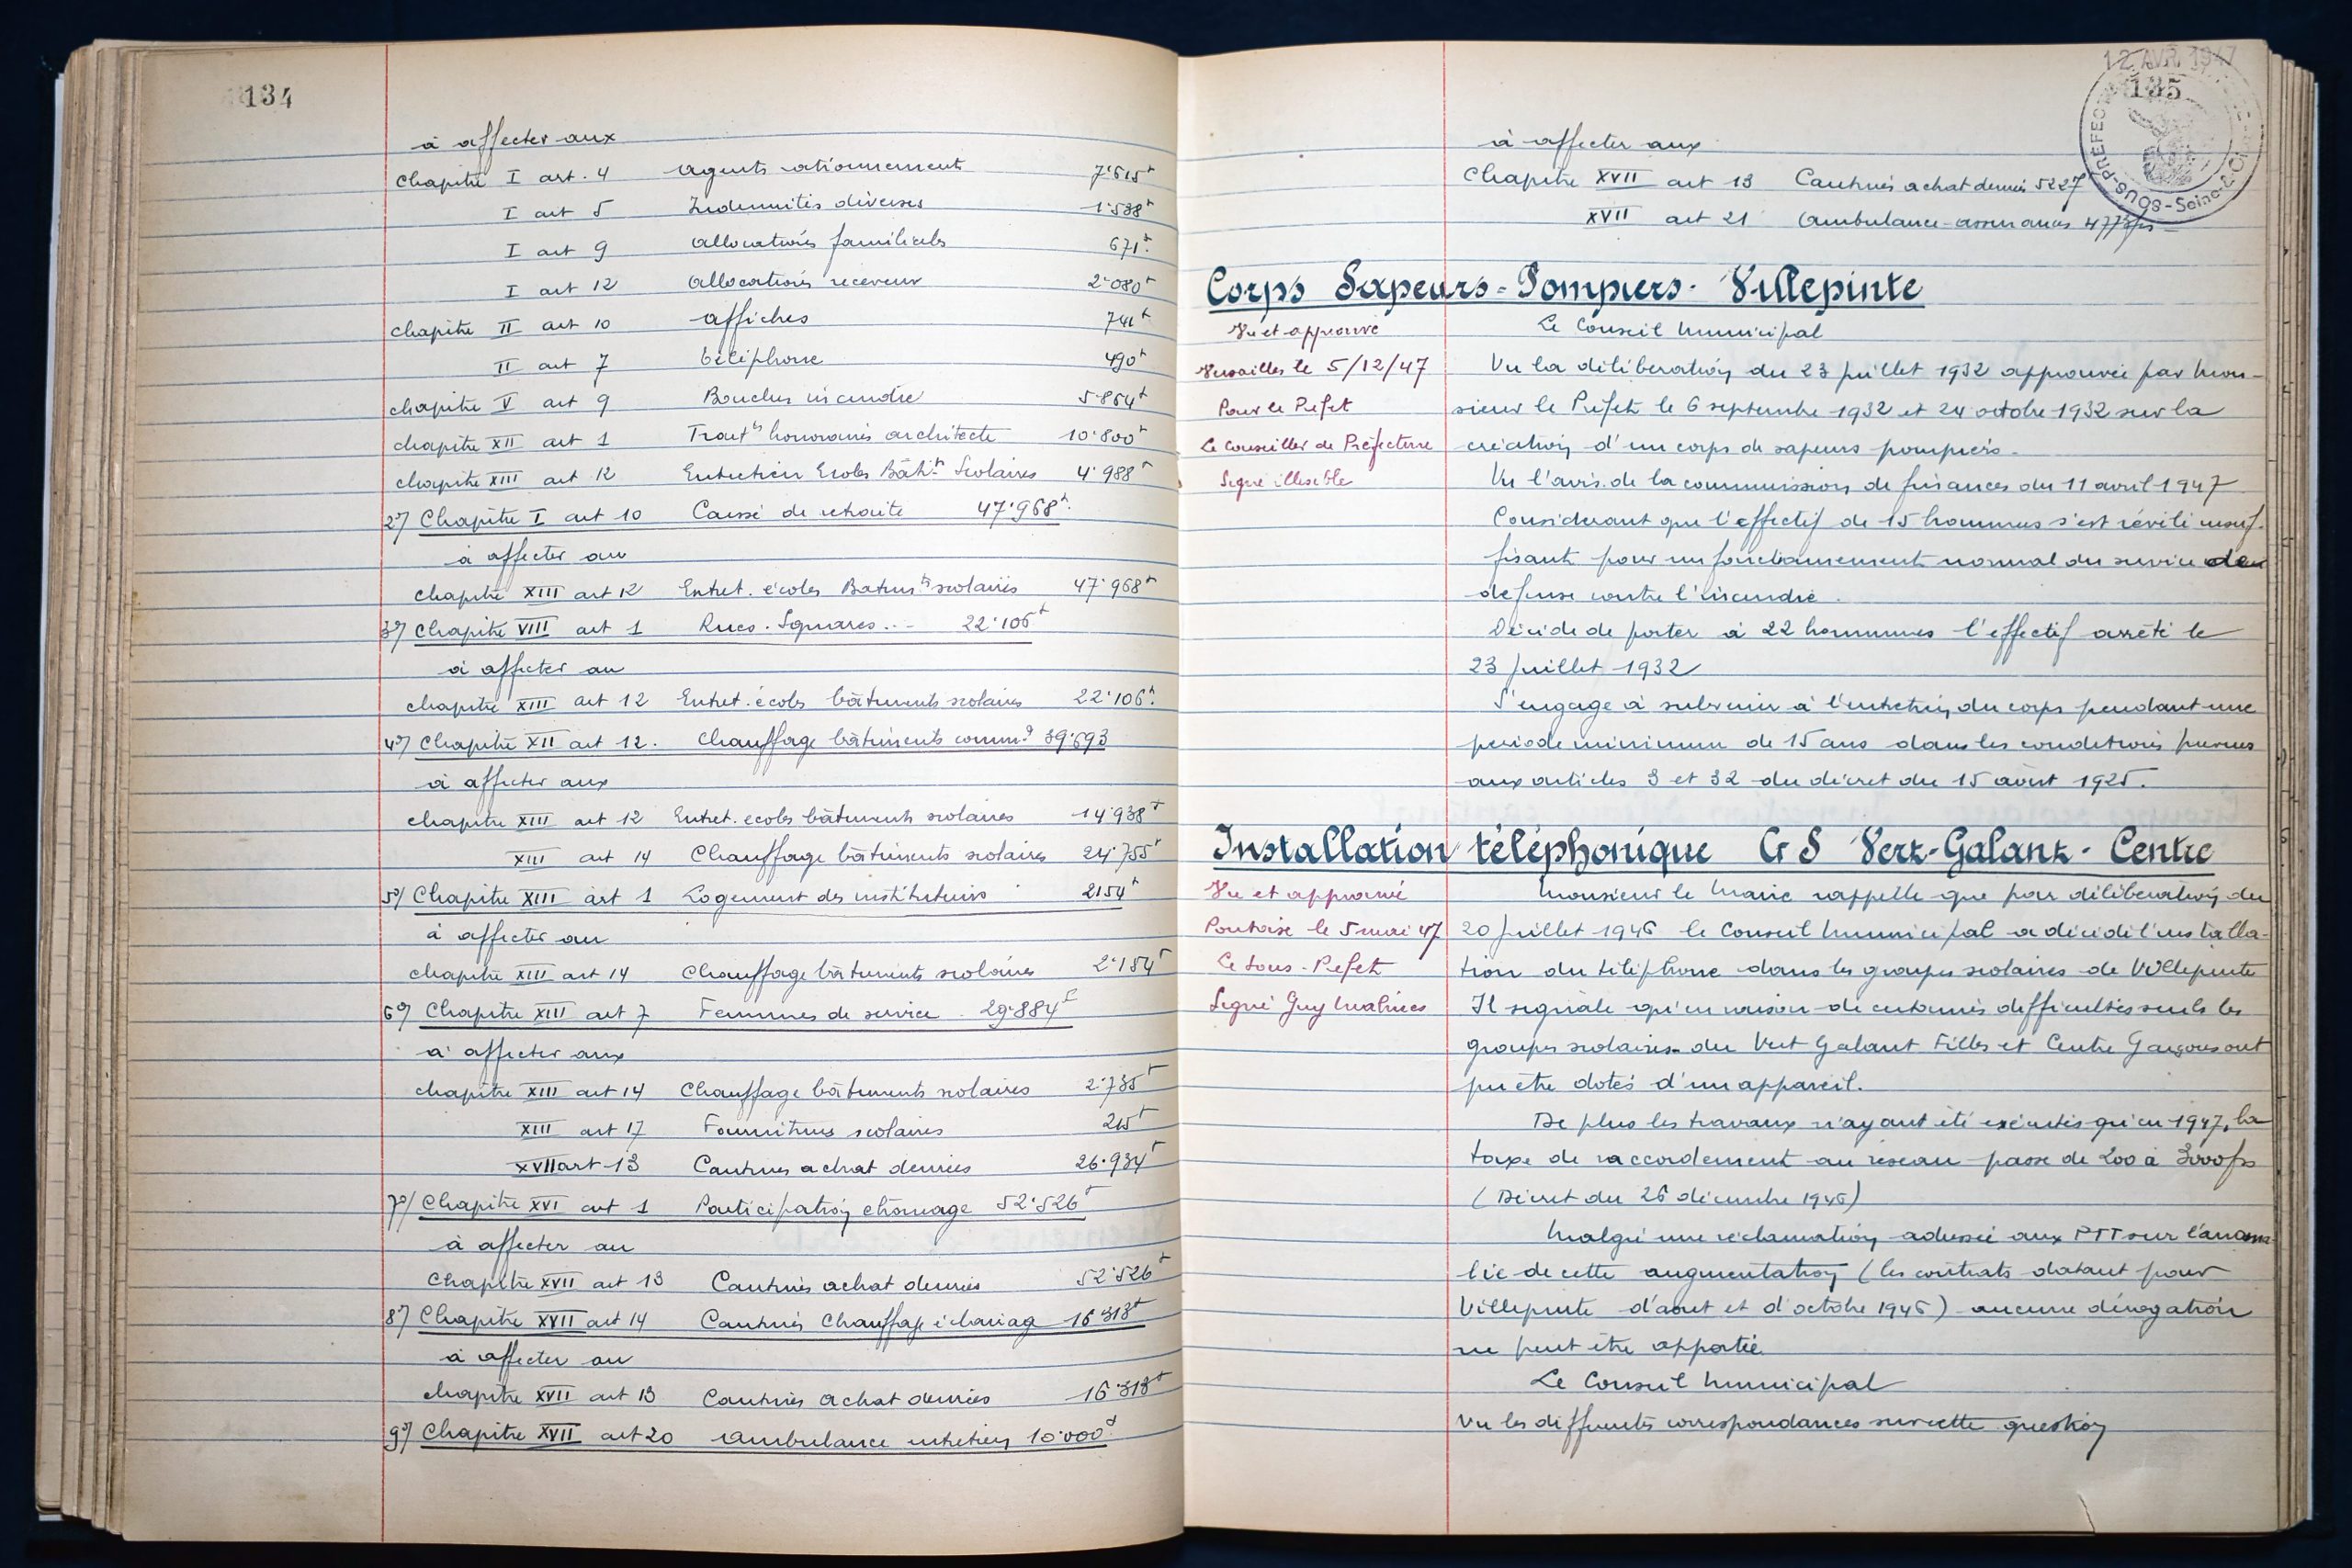 134
à affecter aux
Chapitre I art. 4 agents rationnement 7.615f
I art 5 Indemnités diverses 1.538f
I art 9 allocations familiales 671f.
I art 12 allocations receveur 2.080f
chapitre II art 10 affiches 741f
II art 7 téléphone 490f
chapitre V art 9 Bouches incendie 5.864f
chapitre XII art 1 Trait ts honoraires architecte 10.800f
chapitre XIII art 12 Entretien Ecoles Bâti ts Scolaires 4.988f
2°/ Chapitre I art 10 Caisse de retraite 47.968f.
à affecter au
chapitre XIII art 12 Entret. écoles Batim ts scolaires 47.968f
3°/ Chapitre VIII art 1 Rues. Squares... 22.106f
à affecter au
chapitre XIII art 12 Entret. écoles bâtiments scolaires 22.106f.
4°/ Chapitre XII art 12. Chauffage bâtiments comm x 39.693
à affecter aux
chapitre XIII art 12 Entret. ecoles bâtiments scolaires 14.938f
XIII art 14 Chauffage bâtiments scolaires 24.755f
5°/ Chapitre XIII art 1 Logement des instituteurs 2154f
à affecter au
chapitre XIII art 14 Chauffage bâtiments scolaires 2.154f
6°/ Chapitre XIII art 7 Femmes de service . 29.884f
à affecter aux
chapitre XIII art 14 Chauffage bâtiments scolaires 2.735f
XIII art 17 Fournitures scolaires 215f
XVII art 13 Cantines achat denrées 26.934f
7°/ Chapitre XVI art 1 Participation chômage 52.526f
à affecter au
Chapitre XVII art 13 Cantines achat denrées 52.526f
8°/ Chapitre XVII art 14 Cantines Chauffage éclairag 16.313f
à affecter au
chapitre XVII art 13 Cantines achat denrées 16.313f
9°/ Chapitre XVII art 20 ambulance entretien 10.000f
12 AVR. 1947
135
SOUS-PRÉFECTURE Seine-&-Oise
à affecter aux
Chapitre XVII art 13 Cantines achat denrées 5227f
XVII art 21 ambulance-assurances 4773frs
Corps Sapeurs-Pompiers. Villepinte
Vu et approuvé
Versailles le 5/12/47
Pour le Préfet
Le Conseiller de Préfecture
Signé illisible
Le Conseil Municipal
Vu la délibération du 23 juillet 1932 approuvée par Mon-
sieur le Préfet le 6 septembre 1932 et 24 octobre 1932 sur la
création d'un corps de sapeurs pompiers.
Vu l'avis de la commission de finances du 11 avril 1947
Considerant que l'effectif de 15 hommes s'est révélé insuf-
fisant pour un fonctionnement normal du service de
defense contre l'incendie.
Décide de porter à 22 hommes l'effectif arrêté le
23 juillet 1932
S'engage à subvenir à l'entretien du corps pendant une
periode minimum de 15 ans dans les conditions prévues
aux articles 3 et 32 du décret du 15 août 1925.
Installation téléphonique G S Vert-Galant. Centre
Vu et approuvé
Pontoise le 5 mai 47
Le Sous-Préfet
Signé Guy
Monsieur le Maire rappelle que par délibération du
20 juillet 1946 le Conseil Municipal a décidé l'installa-
tion du téléphone dans les groupes scolaires de Villepinte
Il signale qu'en raison de certaines difficultés seuls les
groupes scolaires du Vert Galant Filles et Centre Garçons ont
pu être dotés d'un appareil.
De plus les travaux n'ayant été exécutés qu'en 1947, la
taxe de raccordement au réseau passe de 200 à 3000frs
(Décret du 26 décembre 1946)
Malgré une réclamation adressée aux PTT sur l'anoma-
lie de cette augmentation (les contrats datant pour
Villepinte d'aout et d'octobre 1946) aucune dérogation
ne peut être apportée
Le Conseil Municipal
Vu les différentes correspondances sur cette question